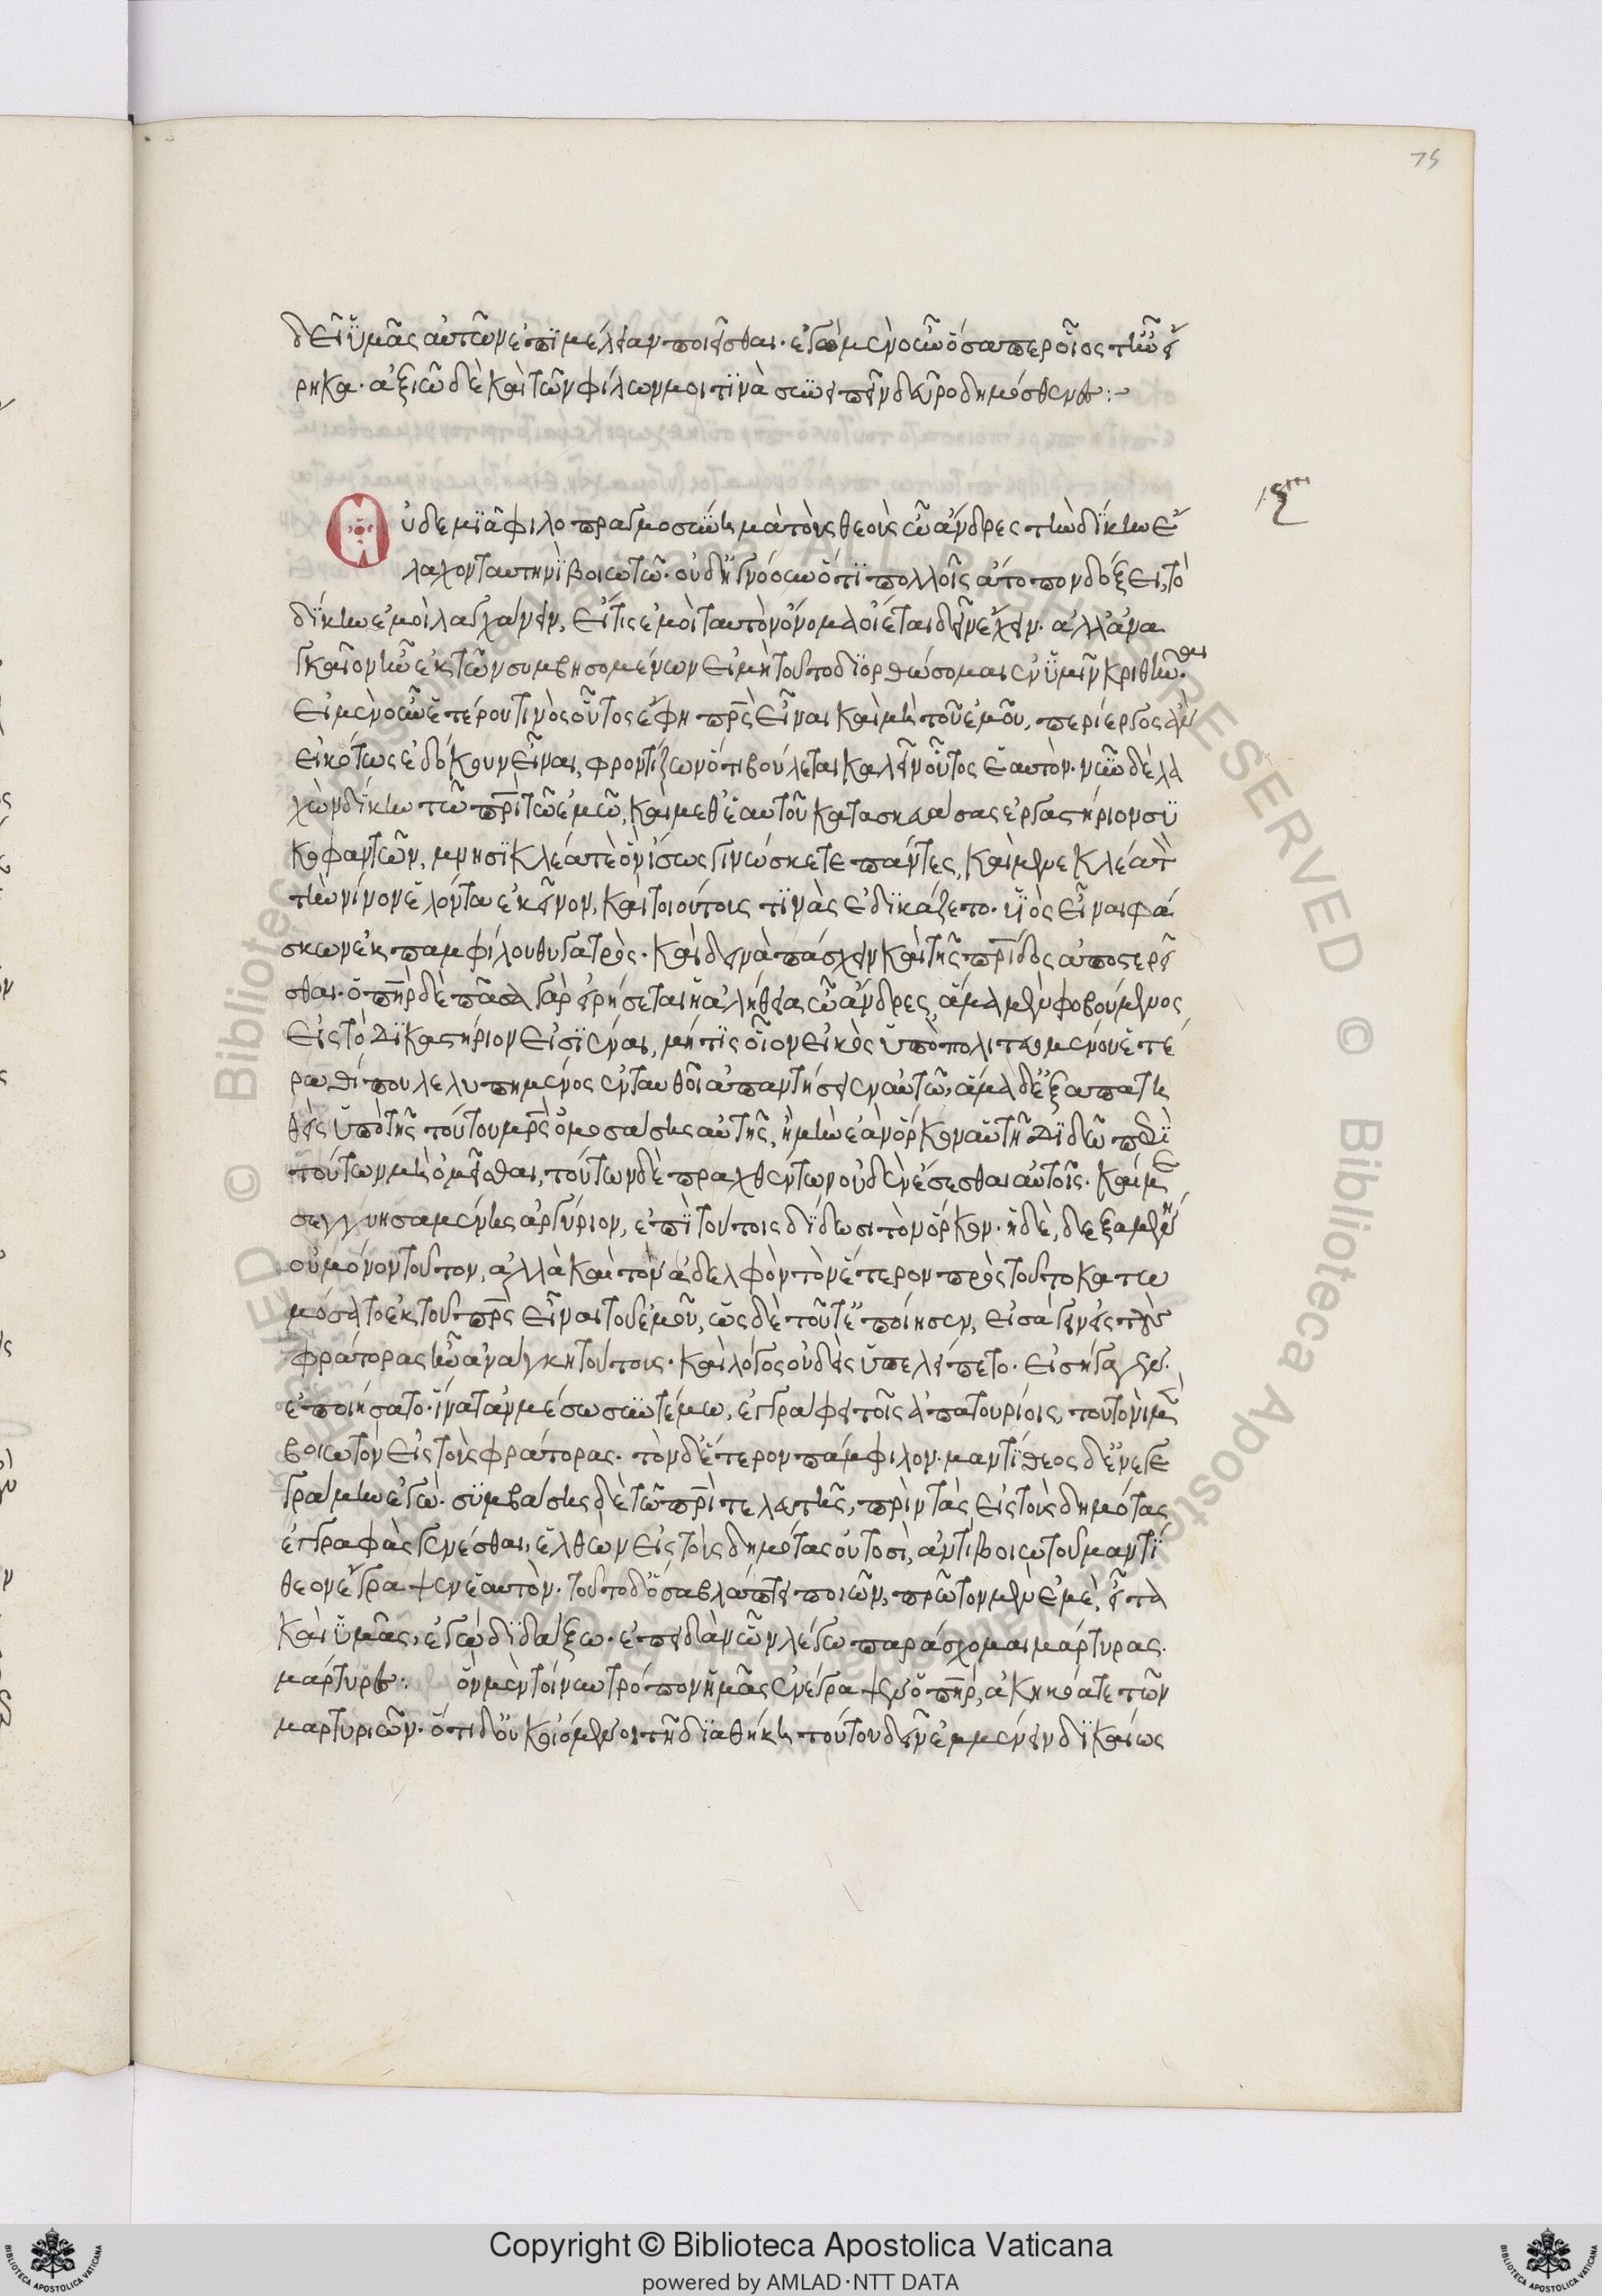 75
δεῖ ὑμᾶς αὐτῶν ἐπιμέλειαν ποιεῖσθαι· ἐγὼ μὲν οὖν ὅσαπερ οἷος τ' ἦν εἴ
ρηκα· ἀξιῶ δὲ καὶ τῶν φίλων μοι τινὰ συνειπεῖν δεῦρο δημόσθενες :-
Οὐδεμιᾶ φιλοπραγμοσύνη μὰ τοὺς θεοὺς ὦ ἄνδρες τὴν δίκην ἔ
λαχον ταυτηνὶ βοιωτῶ· οὐδ' ἠγνόουν ὅτι πολλοῖς ἄτοπον δόξει, τὸ
δίκην ἐμοὶ λαγχάνειν, εἴ τις ἐμοὶ ταυτὸν ὄνομα οἴεται δεῖν ἔχειν· ἀλλ' ἀνα
γκαῖον ἦν ἐκ τῶν συμβησομένων εἰ μὴ τοῦτο διορθώσομαι ἐν ὑμῖν κριθῆναι·
εἰ μὲν οὖν ἑτέρου τινὸς οὗτος ἔφη πρς εἶναι καὶ μὴ τοῦ ἐμοῦ, περίεργος ἂν
εἰκότως ἐδόκουν εἶναι, φροντίζων ὅτι βούλεται καλεῖν οὗτος ἑαυτόν· νῦν δὲ λα
χὼν δίκην τῶ πρὶ τῶ ἐμῶ, καὶ μεθ' ἑαυτοῦ κατασκευάσας ἐργαστήριον συ
κοφαντῶν, μνησικλέα τε ὃν ἴσως γινώσκετε πάντες, καὶ μενεκλέα τὸν
τὴν νίνον ἑλόντα ἐκεῖνον, καὶ τοιούτους τινὰς ἐδικάζετο· υἱὸς εἶναι φά
σκων ἐκ παμφίλου θυγατρός· καὶ δεινὰ πάσχειν καὶ τῆς πρίδος ἀποστερεῖ
σθαι· ὅπηρ δὲ πᾶσα γὰρ εἰρήσεται ἡ ἀλήθεια ὦ ἄνδρες, ἅμα μὲν φοβούμενος
εἰς τὸ δικαστήριον εἰσιέναι, μή τις οἷον εἰκὸς ὑπὸ πολιτευομένου ἑτέ
ρωθί που λελυπημένος ἐνταυθοῖ ἀπαντήσειεν αὐτῶ, ἅμα δ' ἐξαπατη
θεὶς ὑπὸ τῆς τούτου μρς ὀμοσάσης αὐτῆς, ἢ μὴν ἐὰν ὅρκον αὐτῆ διδῶ περὶ
τούτων μὴ ὀμεῖσθαι, τούτων δὲ πραχθέντων οὐδὲν ἔσεσθαι αὐτοῖς· καὶ με
σεγγυησαμένης ἀργύριον, ἐπὶ τούτοις δίδωσι τὸν ὅρκον· ἡ δὲ, δεξαμένη
οὐ μόνον τοῦτον, ἀλλὰ καὶ τὸν ἀδελφὸν τὸν ἕτερον πρὸς τοῦτο κατω
μόσατο ἐκ τοῦ πρς εἶναι τοῦ ἐμοῦ, ὡς δὲ τοῦτ' ἐποίησεν, εἰσάγειν εἰς τοὺς
φράτορας ἦν ἀνάγκη τούτους· καὶ λόγος οὐδεὶς ὑπελείπετο· εἰσήγαγεν·
ἐποιήσατο· ἵνα τἂν μέσω συντέμω, ἐγγράφει τοῖς ἀπατουρίοις, τουτονὶ μὲν
βοιωτὸν εἰς τοὺς φράτορας· τὸν δ' ἕτερον πάμφιλον· μαντίθεος δ' ἐνεγε
γράμμην ἐγώ· συμβάσης δὲ τῶ πρὶ τελευτῆς, πρὶν τὰς εἰς τοὺς δημότας
ἐγγραφὰς γενέσθαι, ἐλθὼν εἰς τοὺς δημότας οὑτοσὶ, ἀντὶ βοιωτοῦ μαντί
θεον ἔγραψεν ἑαυτόν· τοῦτο δ' ὅσα βλάπτει ποιῶν, πρῶτον μὲν ἐμὲ, εἶτα
καὶ ὑμᾶς, ἐγὼ διδάξω· ἐπειδὰν ὧν λέγω παράσχομαι μάρτυρας·
μάρτυρες: ὃν μὲν τοίνυν τρόπον ἡμᾶς ἐνέγραψεν ὁ πηρ, ἀκηκόατε τῶν
μαρτυριῶν· ὅτι δ' οὐκ οἰόμενοι τῆ διαθήκη τούτου δεῖν ἐμμένειν δικαίως
Copyright © Biblioteca Apostolica Vaticana
powered by AMLAD·NTT DATA